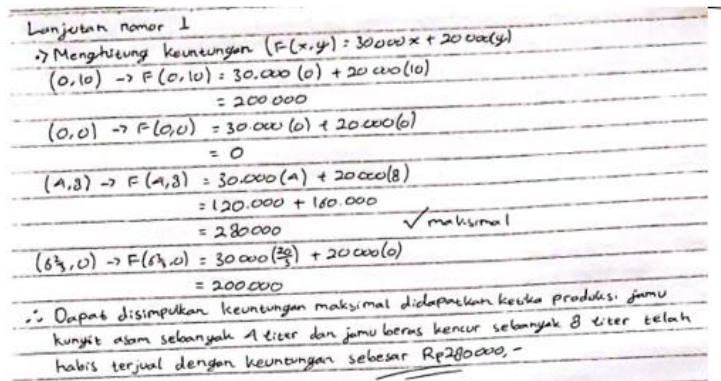 Lanjutan nomor 1
•> Menghitung keuntungan (F(x,y) : 30000x + 20000(y)
(0,10) -> F(0,10) = 30.000 (0) + 20000(10)
= 200 000
(0,0) -> F(0,0) = 30.000 (0) + 20.000(0)
= 0
(4,8) -> F(4,8) = 30.000(4) + 20000(8)
= 120.000 + 160.000
= 280000 ✓ maksimal
(6⅔,0) -> F(6⅔,0) = 30000(20/3) + 20000(0)
= 200.000
∴ Dapat disimpulkan keuntungan maksimal didapatkan ketika produksi jamu
kunyit asam sebanyak 4 liter dan jamu beras kencur sebanyak 8 liter telah
habis terjual dengan keuntungan sebesar Rp280000,-